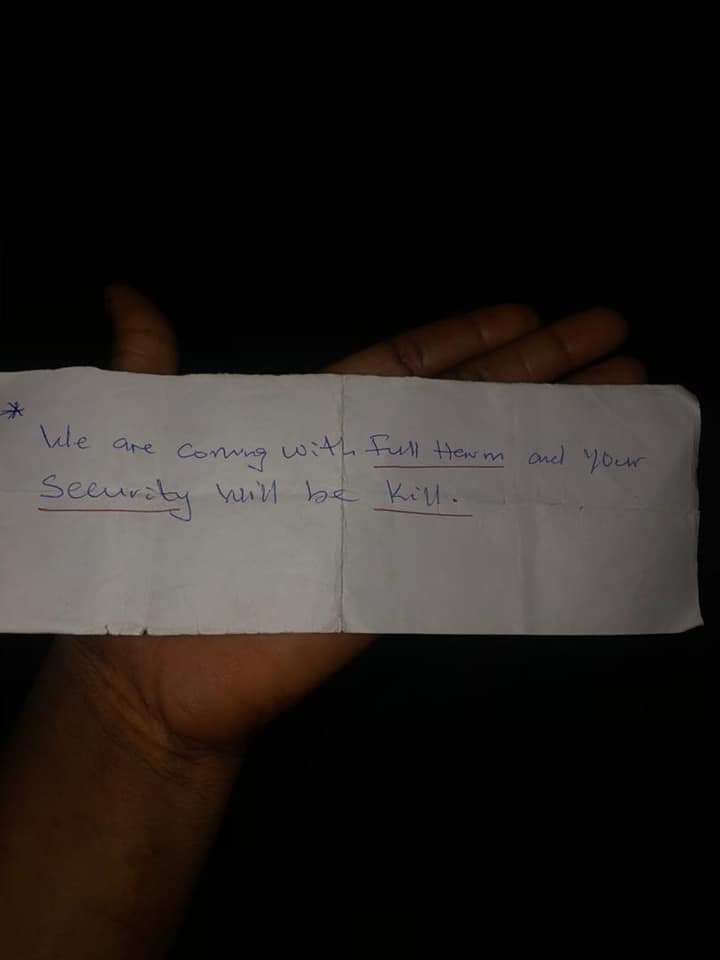 * We are coming with Full Harm and your
Security will be Kill.